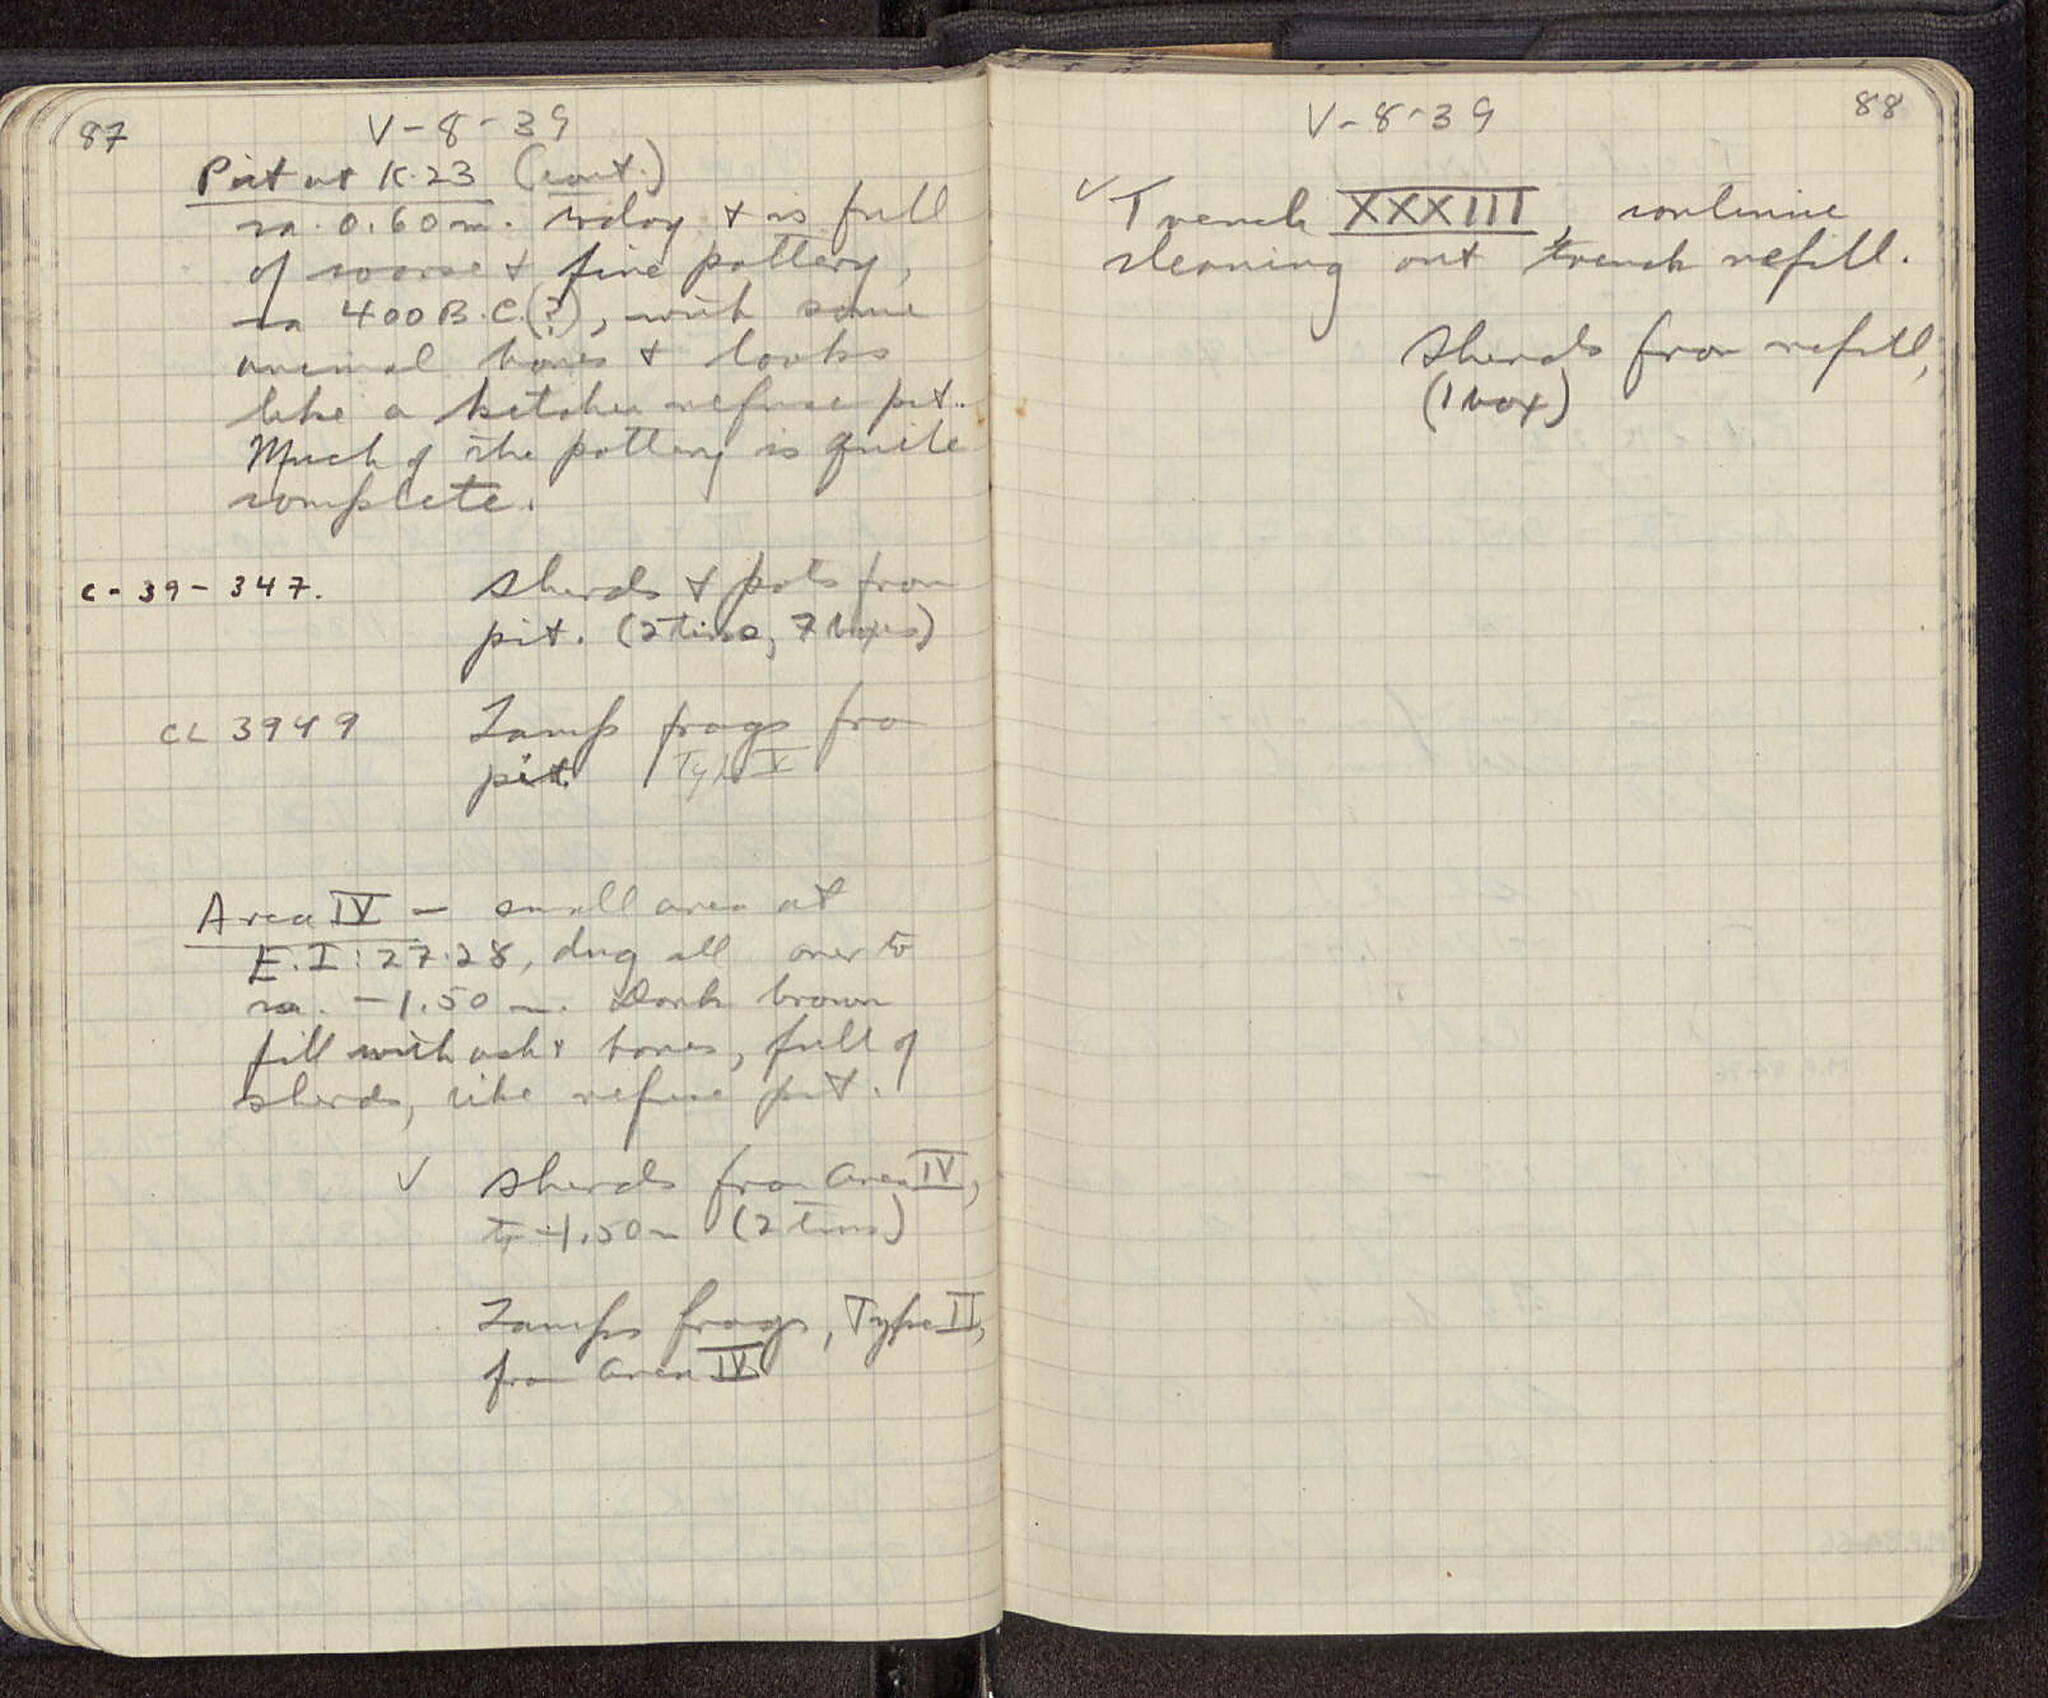 87
V-8-39
Pit at K.23 (cont.)
ca. 0.60 m. today & is full
of coarse & fine pottery,
ca 400 B.C.(?), with some
animal bones & looks
like a kitchen refuse pit.
Much of the pottery is quite
complete.
C-39-347.
Sherds & pots from
pit. (2 tins, 7 boxes)
CL 3949
Lamp frags from
pit. Type V
Area IV – small area at
E.I:27.28, dug all over to
ca. -1.50 m. Dark brown
fill with ash & bones, full of
sherds, like refuse pit.
✓ Sherds from Area IV,
to -1.50 m (2 tins)
Lamps frags, Type II,
from Area IV
88
V-8-39
✓ Trench XXXIII, continue
cleaning out trench refill.
Sherds from refill,
(1 box)